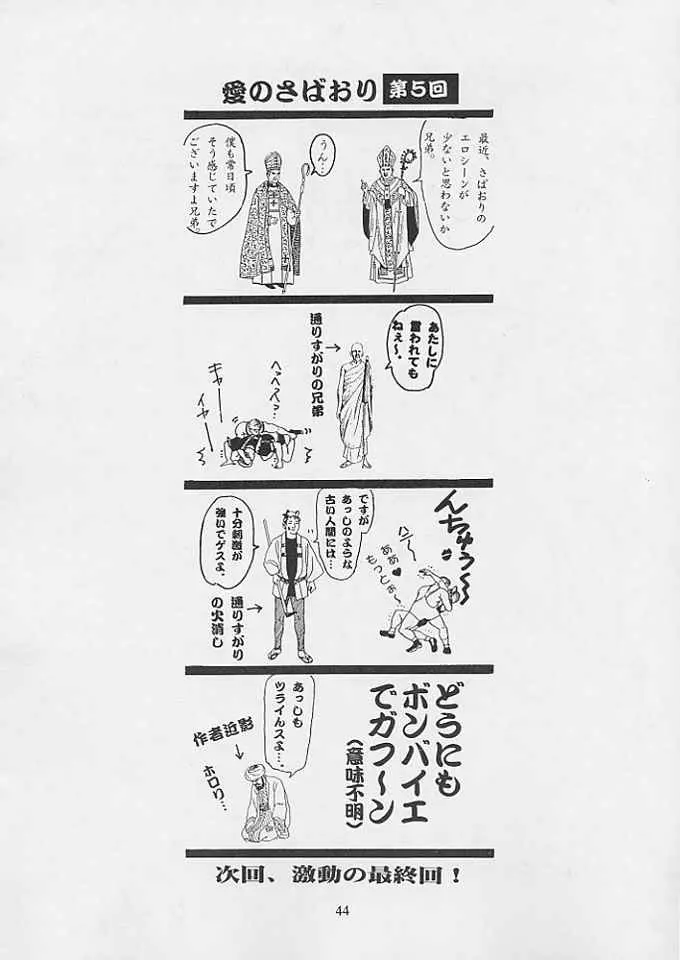 愛のさばおり 第5回
最近、さばおりの
エロシーンが
少ないと思わないか
兄弟。
うん…
僕も常日頃
そう感じていたで
ございますよ兄弟。
あたしに
言われても
ねぇ〜。
通りすがりの兄弟
へっへっへっ…
キャーーー
イヤーーー
んちゅう〜〜
ハァー
ああ♥
もっとぉ〜
ですが
あっしのような
古い人間には…
十分刺激が
強いでゲスよ。
通りすがり
の火消し
どうにも
ボンバイエ
でガフ〜ン
(意味不明)
あっしも
ツライんスよ…。
作者近影
ホロリ…
次回、激動の最終回!
44